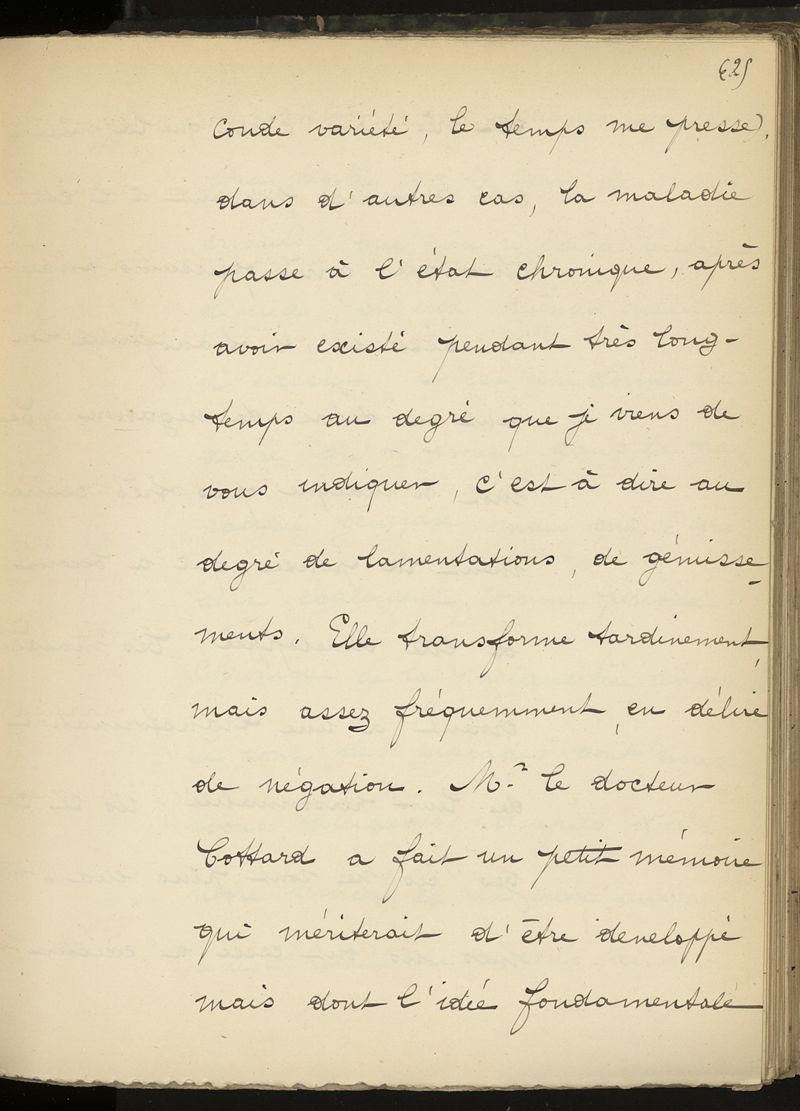 625
conde variété, le temps me presse).
dans d'autres cas, la maladie
passe à l'état chronique, après
avoir existé pendant très long-
temps au degré que je viens de
vous indiquer, c'est à dire au
degré de lamentations, de gémisse-
ments. Elle transforme tardivement,
mais assez fréquemment, en délire
de négation. Mr. le docteur
Cottard a fait un petit mémoire
qui mériterait d'être developpé
mais dont l'idée fondamentale